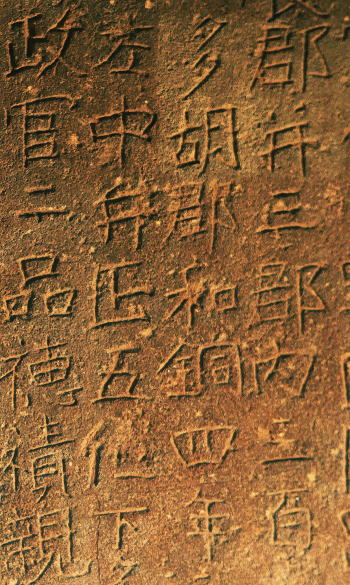 郡并三郡内三百
多胡郡和銅四年
左中弁正五位下
政官二品穂積親